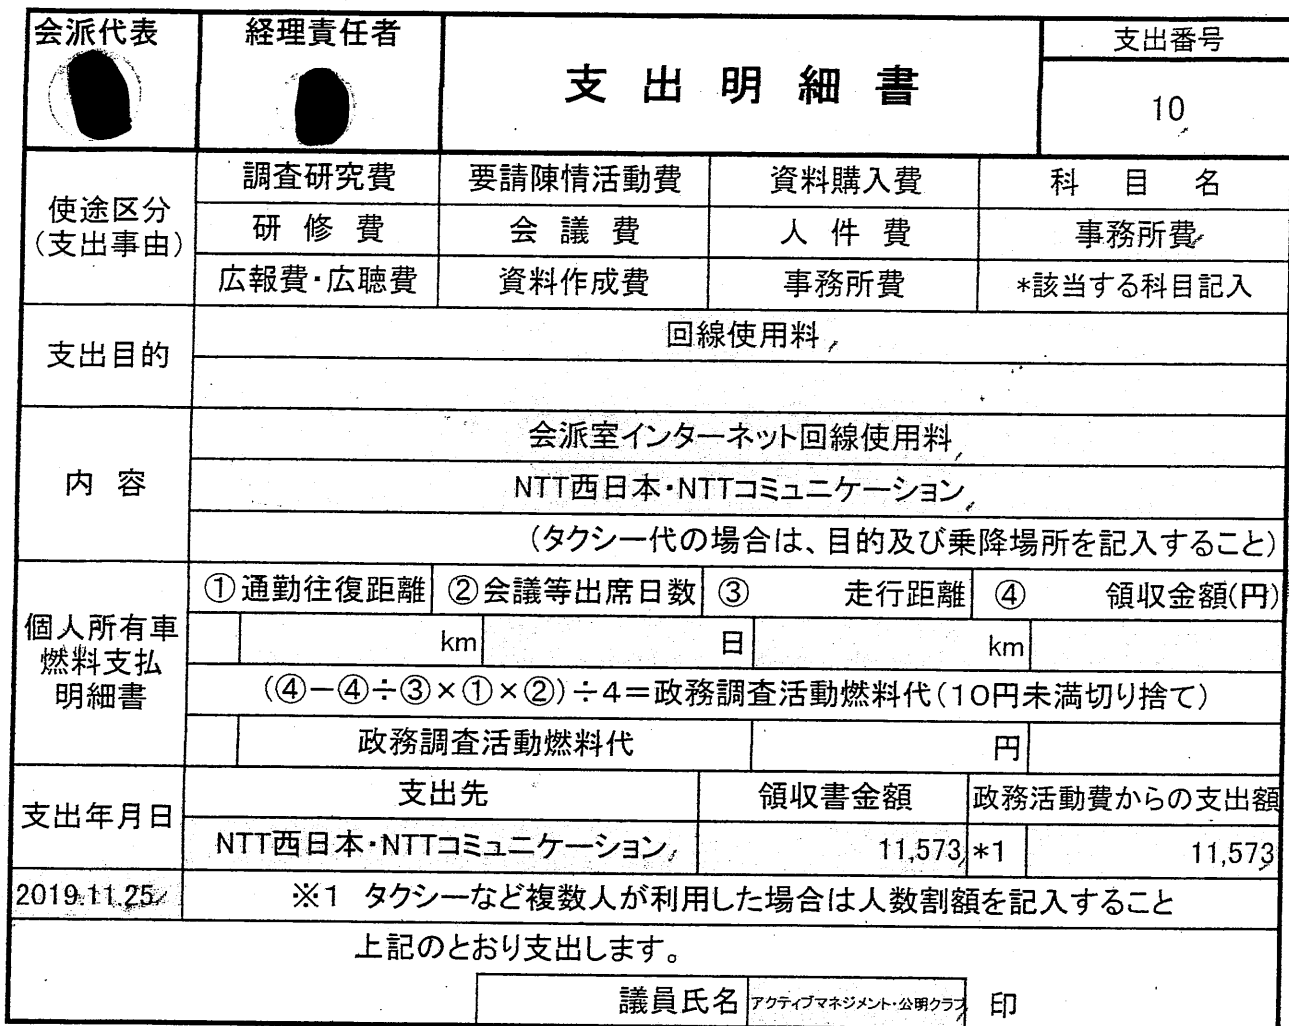 会派代表 経理責任者 支出明細書 支出番号
10
使途区分
(支出事由)
調査研究費 要請陳情活動費 資料購入費 科目名
研修費 会議費 人件費 事務所費
広報費・広聴費 資料作成費 事務所費 *該当する科目記入
支出目的
回線使用料
内容
会派室インターネット回線使用料
NTT西日本・NTTコミュニケーション
(タクシー代の場合は、目的及び乗降場所を記入すること)
個人所有車
燃料支払
明細書
①通勤往復距離 ②会議等出席日数 ③ 走行距離 ④ 領収金額(円)
km 日 km
(④－④÷③×①×②)÷4＝政務調査活動燃料代(10円未満切り捨て)
政務調査活動燃料代 円
支出年月日 支出先 領収書金額 政務活動費からの支出額
NTT西日本・NTTコミュニケーション 11,573 *1 11,573
2019.11.25 ※1 タクシーなど複数人が利用した場合は人数割額を記入すること
上記のとおり支出します。
議員氏名 アクティブマネジメント・公明クラブ 印